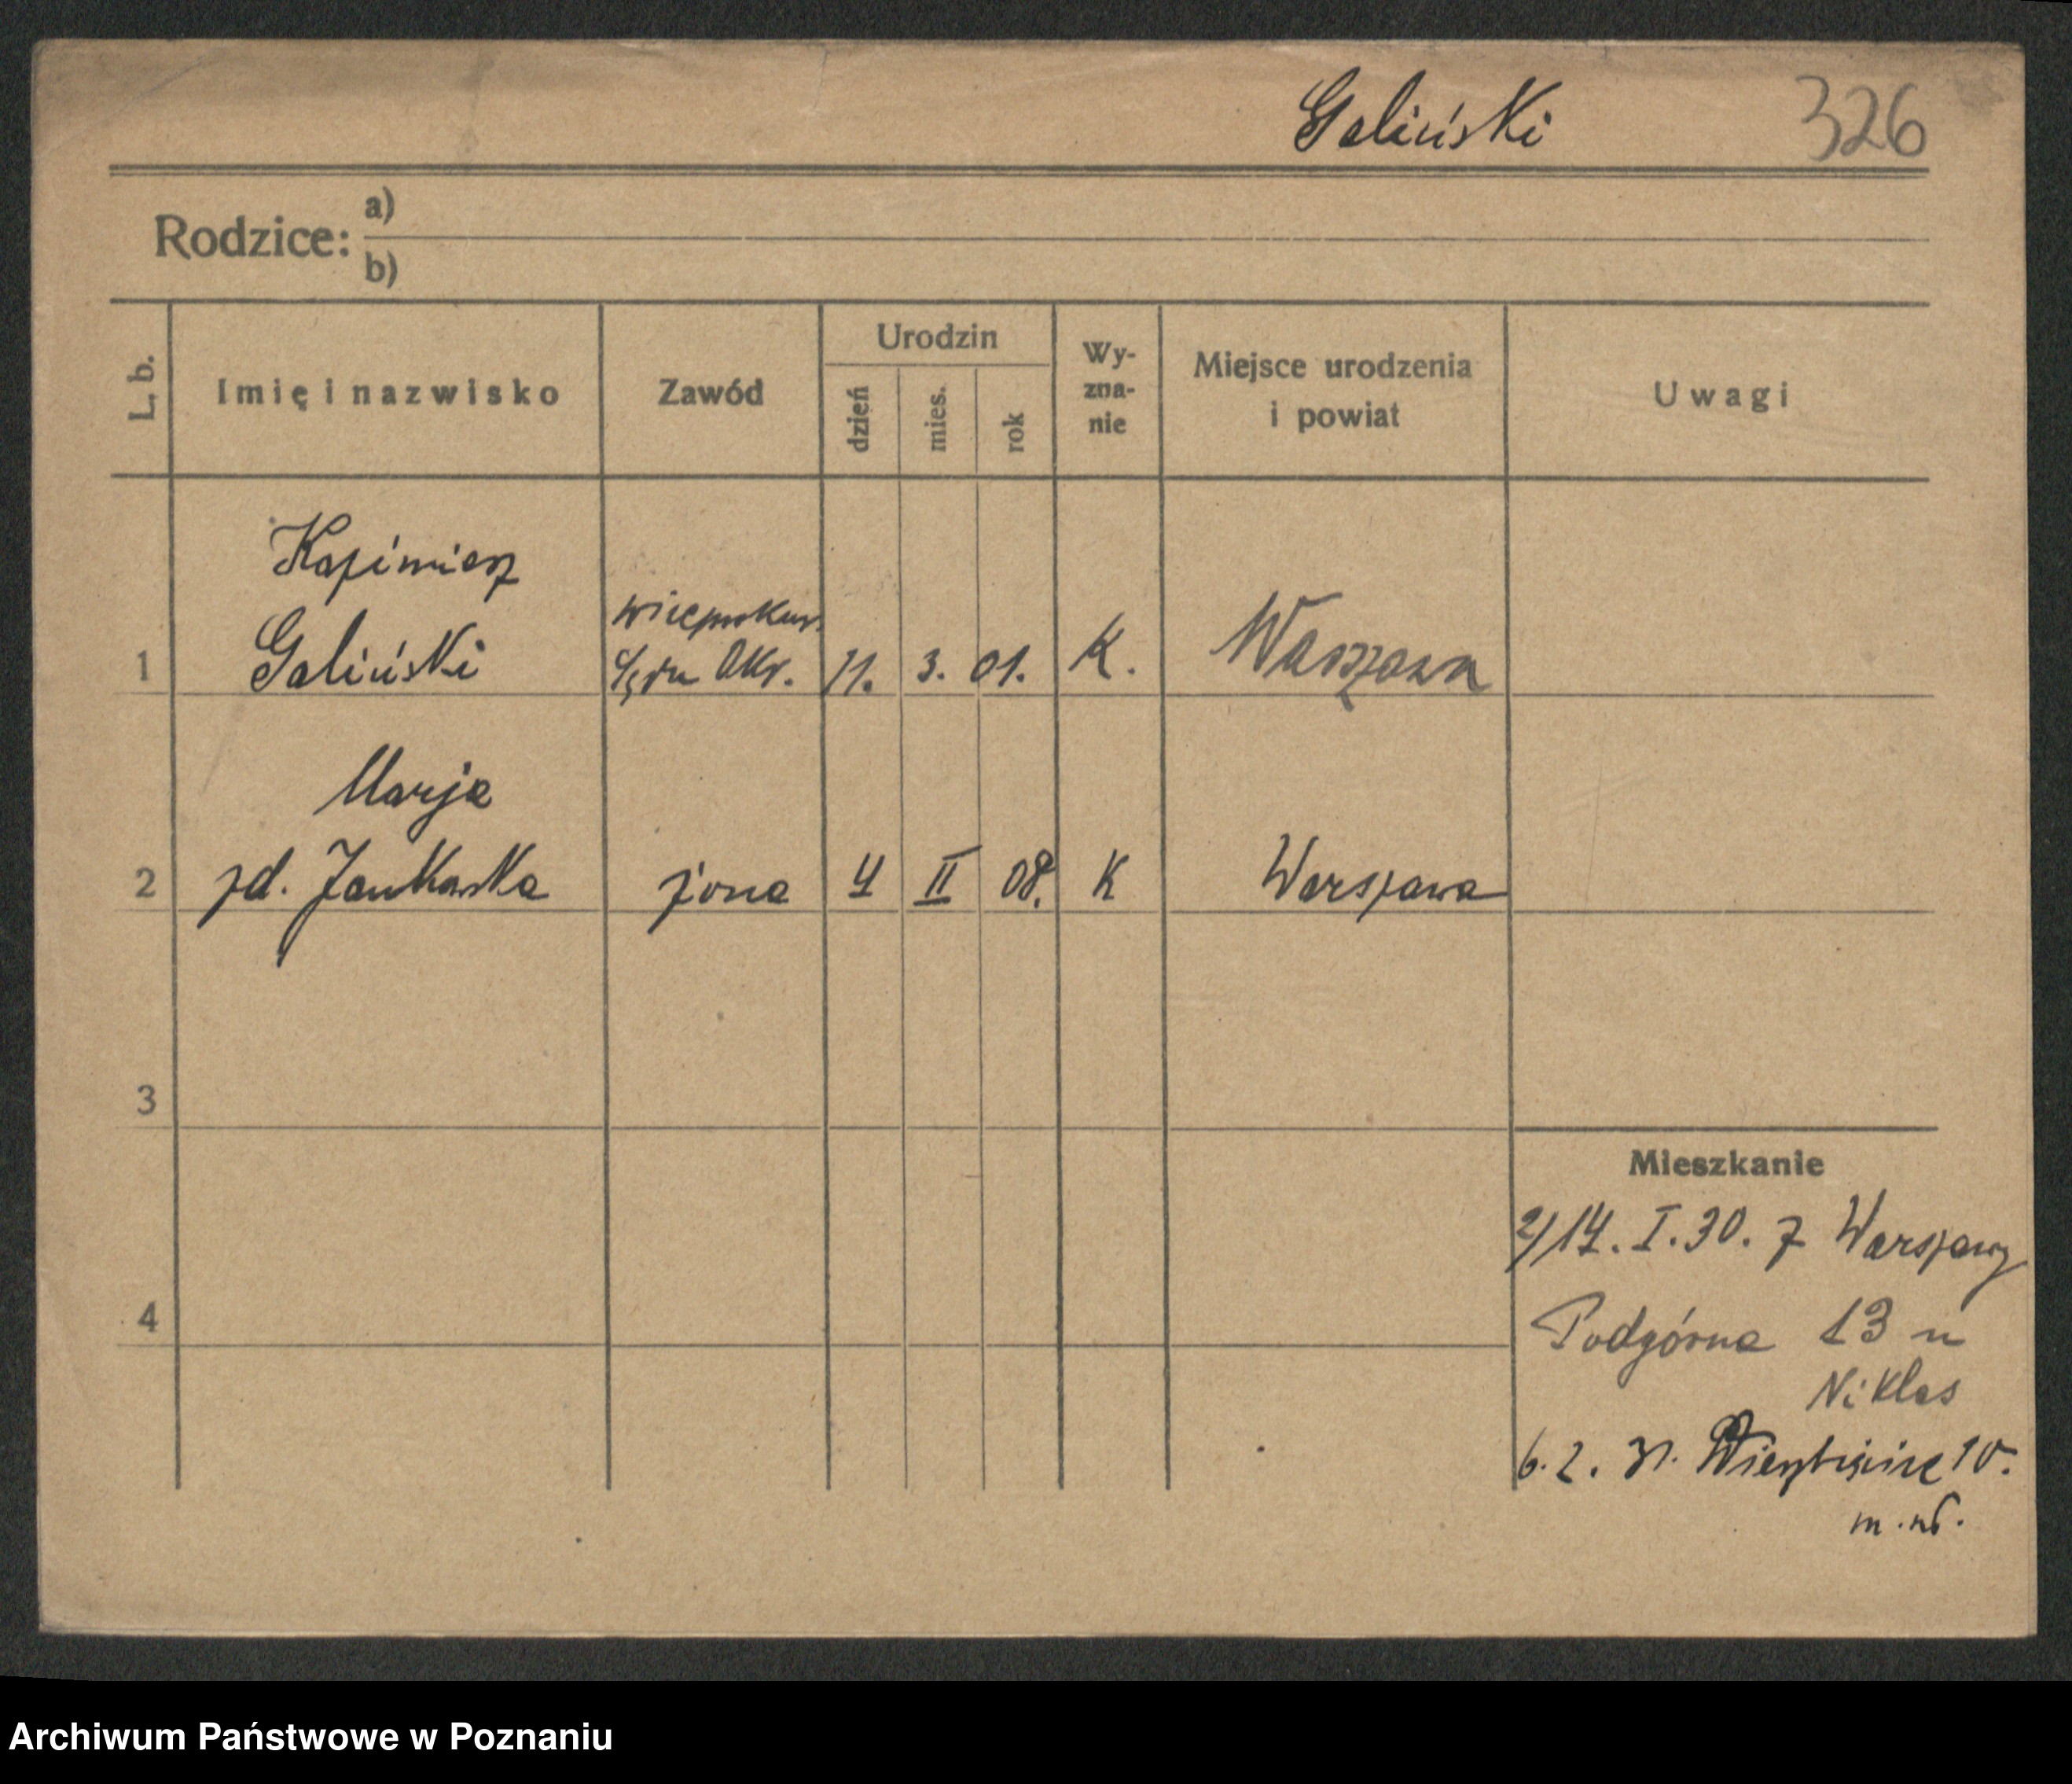 Galiński 326
Rodzice: a)
b)
L. b. Imię i nazwisko Zawód Urodzin dzień mies. rok Wy-zna-nie Miejsce urodzenia i powiat Uwagi
Kazimierz
wiceprokur.
1 Galiński Sądu Okr. 11. 3. 01. K. Warszawa
Marja
2 zd. Jankowska żona 4 II 08. K Warszawa
3
Mieszkanie
2/14. I. 30. z Warszawy
4 Podgórna 13 u
Niklas
6. 2. 31. Wierzbięcice 10.
Archiwum Państwowe w Poznaniu